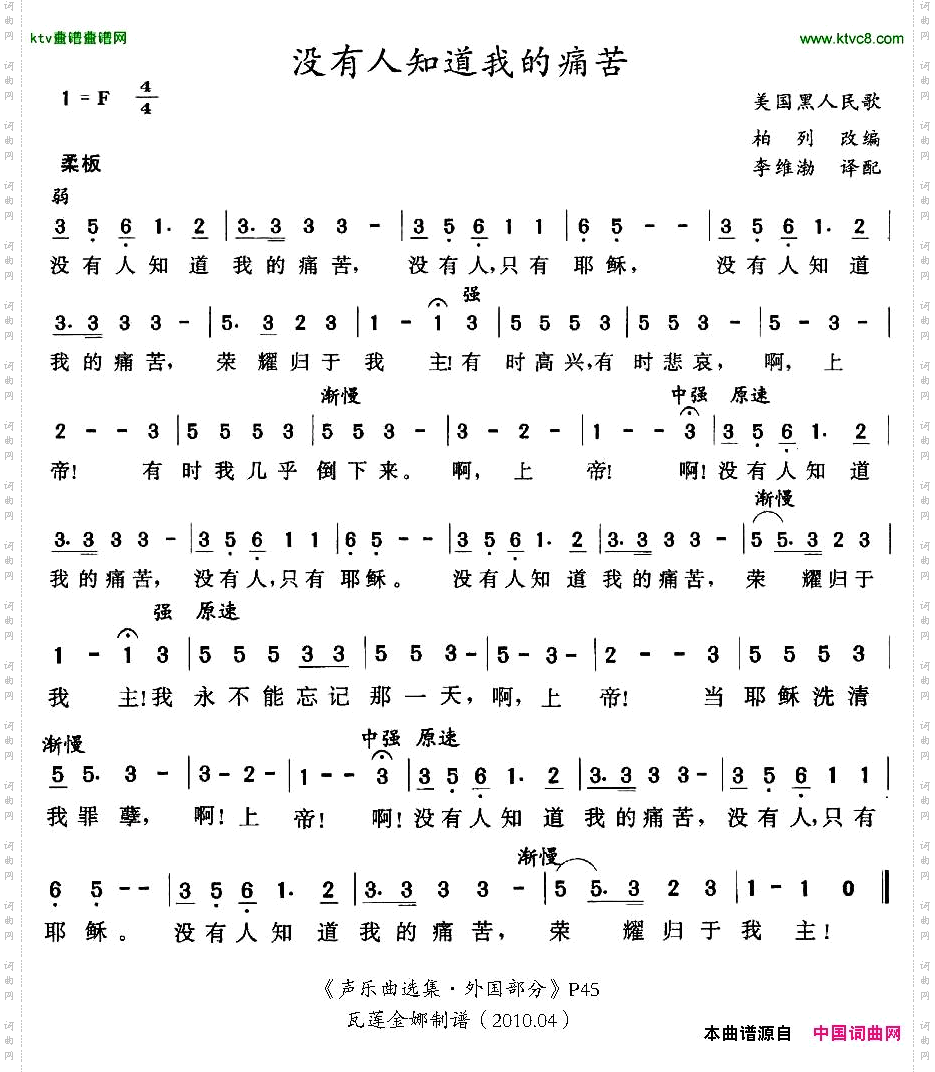 ktv壹谱壹谱网
www.ktvc8.com
没有人知道我的痛苦
1 = F 4/4
美国黑人民歌
柏 列 改编
李维渤 译配
柔板
弱
3 5 6 1. 2 | 3. 3 3 3 - | 3 5 6 1 1 | 6 5 - - | 3 5 6 1. 2 |
没有人知道我的痛苦, 没有人,只有耶稣, 没有人知道
强
3. 3 3 3 - | 5. 3 2 3 | 1 - 1 3 | 5 5 5 3 | 5 5 3 - | 5 - 3 - |
我的痛苦, 荣耀归于我主!有时高兴,有时悲哀, 啊, 上
渐慢 中强 原速
2 - - 3 | 5 5 5 3 | 5 5 3 - | 3 - 2 - | 1 - - 3 | 3 5 6 1. 2 |
帝! 有时我几乎倒下来。啊, 上帝! 啊!没有人知道
渐慢
3. 3 3 3 - | 3 5 6 1 1 | 6 5 - - | 3 5 6 1. 2 | 3. 3 3 3 - | 5 5. 3 2 3 |
我的痛苦, 没有人,只有耶稣。 没有人知道我的痛苦, 荣耀归于
强 原速
1 - 1 3 | 5 5 5 3 3 | 5 5 3 - | 5 - 3 - | 2 - - 3 | 5 5 5 3 |
我主!我永不能忘记那一天,啊,上帝! 当耶稣洗清
渐慢 中强 原速
5 5. 3 - | 3 - 2 - | 1 - - 3 | 3 5 6 1. 2 | 3. 3 3 3 - | 3 5 6 1 1 |
我罪孽, 啊!上帝! 啊!没有人知道我的痛苦,没有人,只有
渐慢
6 5 - - | 3 5 6 1. 2 | 3. 3 3 3 - | 5 5. 3 2 3 | 1 - 1 0 ‖
耶稣。 没有人知道我的痛苦, 荣耀归于我主!
《声乐曲选集·外国部分》P45
瓦莲金娜制谱（2010.04）
本曲谱源自 中国词曲网